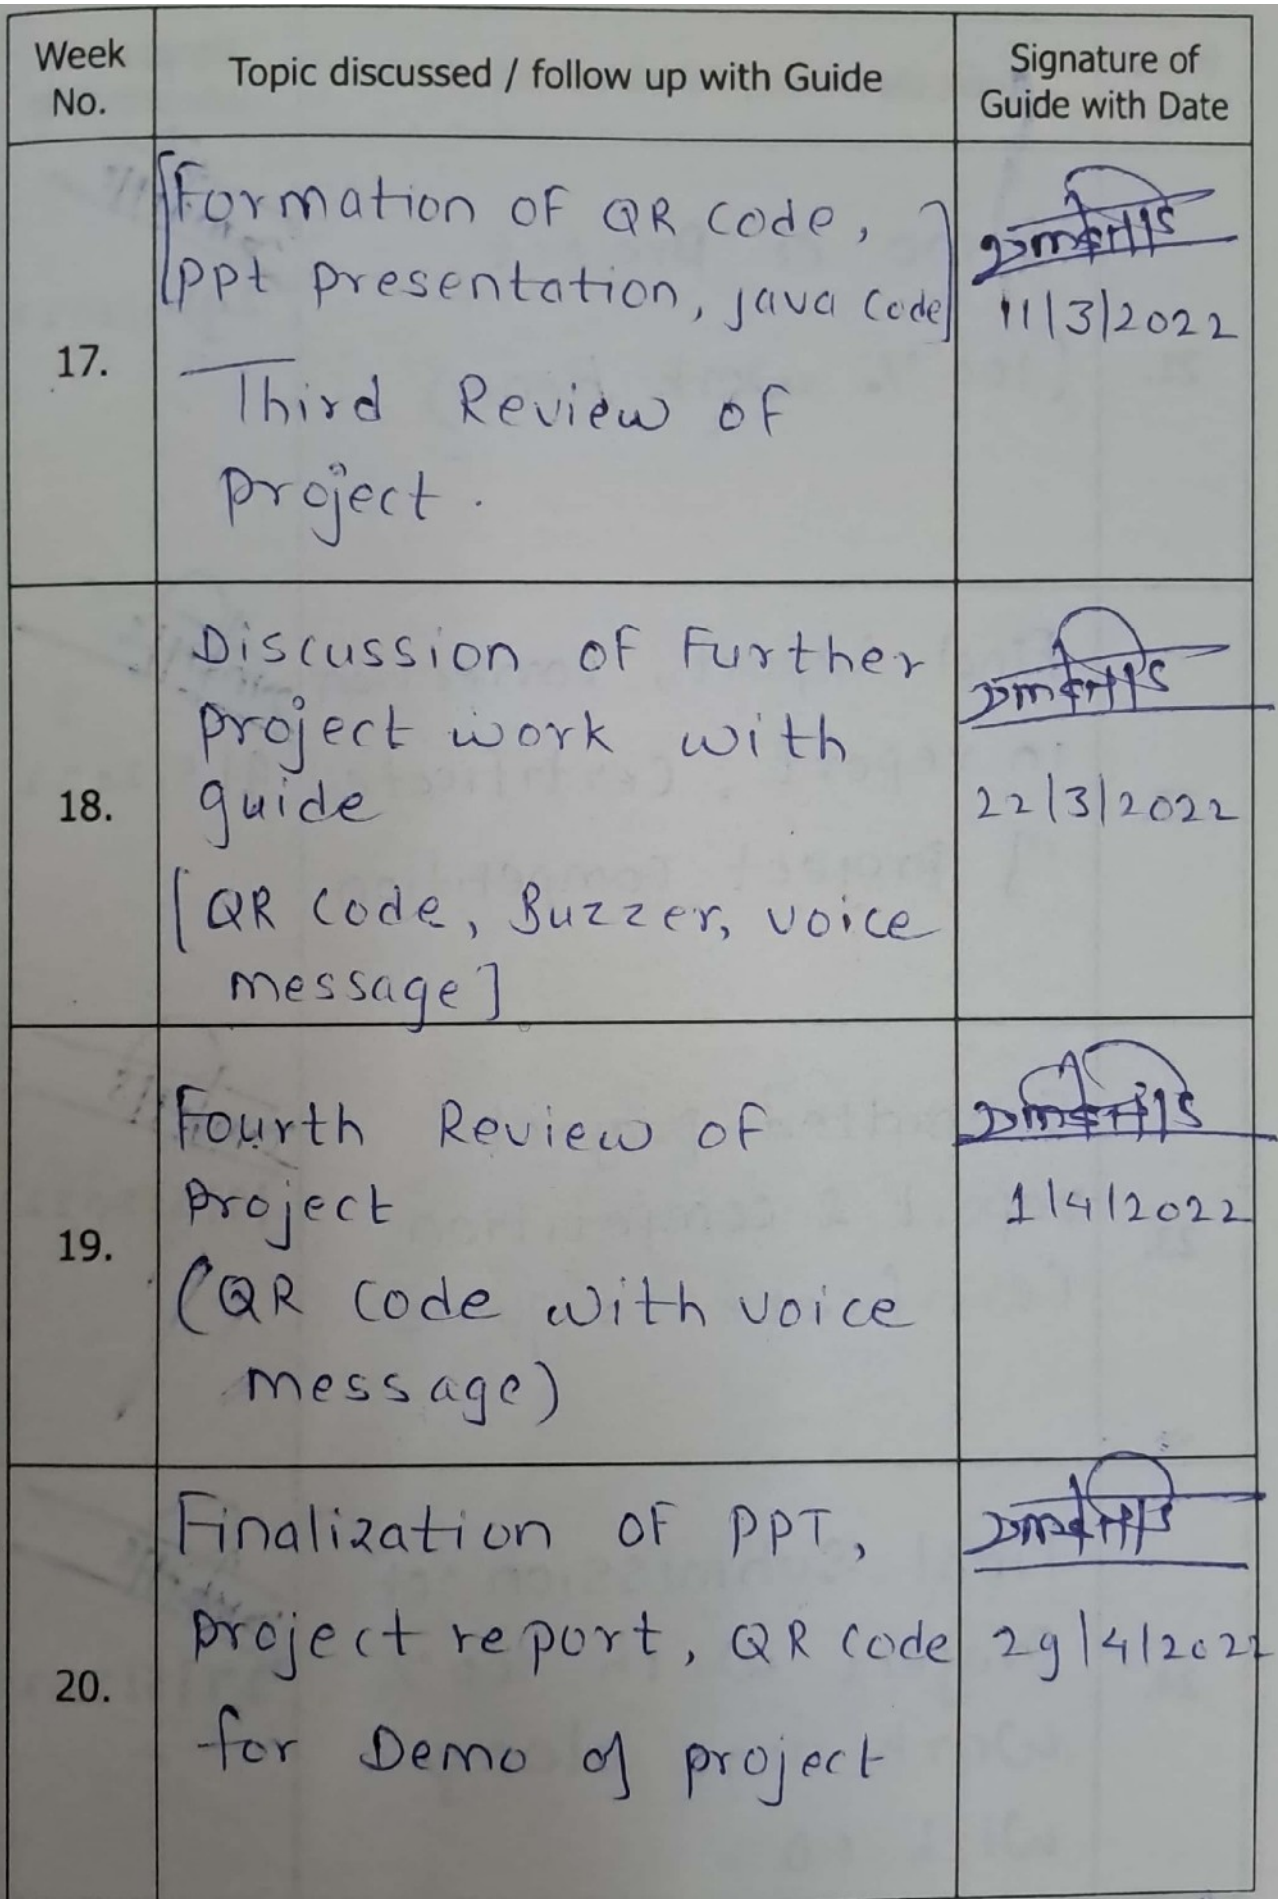 Week
No.
Topic discussed / follow up with Guide
Signature of
Guide with Date
17.
[Formation of QR code,
ppt presentation, java code]
Third Review of
project.
11/3/2022
18.
Discussion of Further
project work with
guide
[QR code, Buzzer, voice
message]
22/3/2022
19.
Fourth Review of
project
(QR code with voice
message)
1/4/2022
20.
Finalization of PPT,
project report, QR code
for Demo of project
29/4/2022